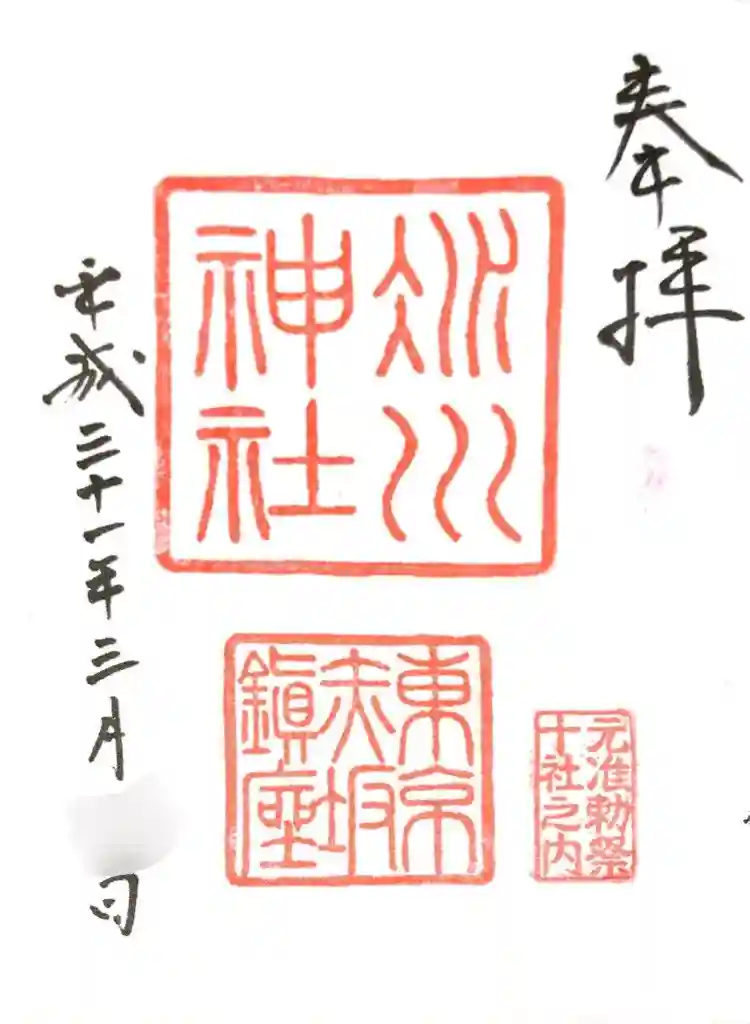 奉拝
氷川
神社
東京
赤坂
鎮座
元准勅祭
十社之内
平成三十一年三月
日